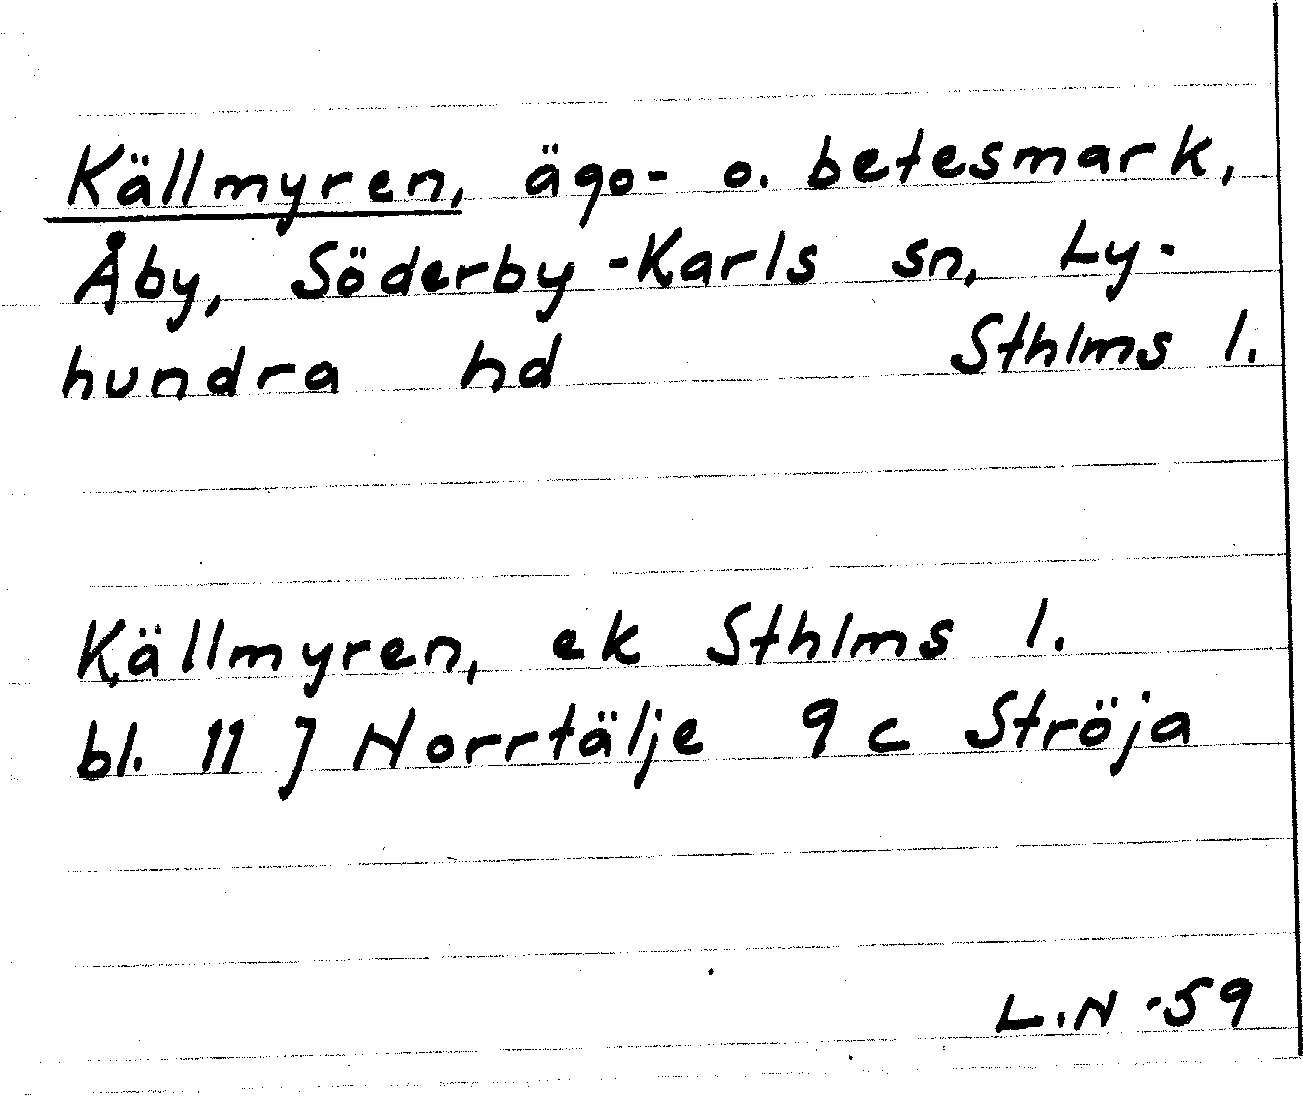 Källmyren, ägo- o. betesmark,
Åby, Söderby-Karls sn, Ly-
hundra hd Sthlms l.
Källmyren, ek Sthlms l.
bl. 11 J Norrtälje 9 c Ströja
L.N -59